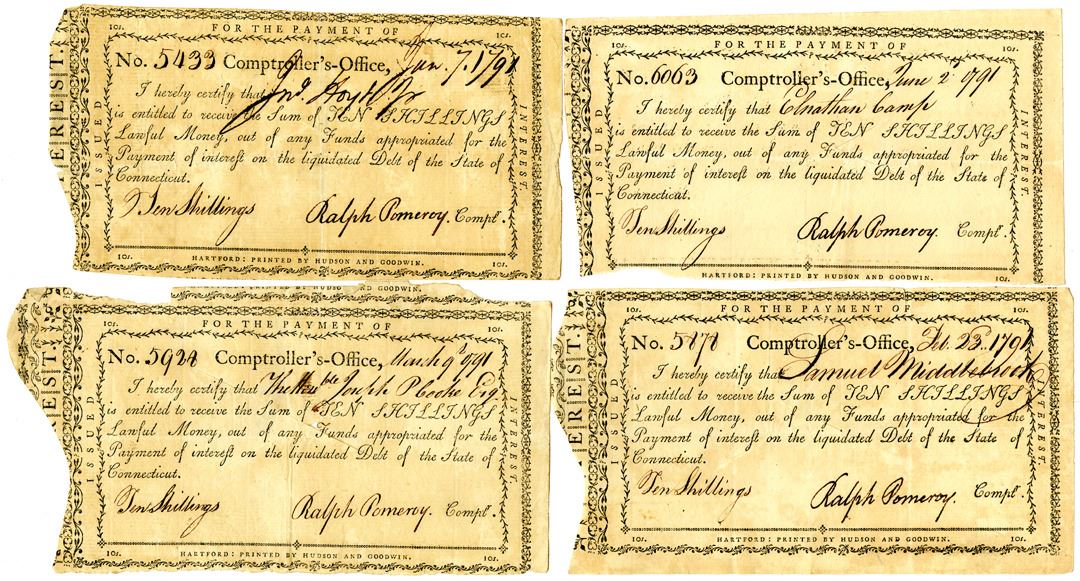 10s. FOR THE PAYMENT OF 10s.
No. 5433 Comptroller's-Office, Jan. 7. 1791
I hereby certify that Jno. Hoyt Jr
is entitled to receive the Sum of TEN SHILLINGS
Lawful Money, out of any Funds appropriated for the
Payment of interest on the liquidated Debt of the State of
Connecticut.
Ten Shillings Ralph Pomeroy. Compt.
10s. 10s.
HARTFORD: PRINTED BY HUDSON AND GOODWIN.
ISSUED
INTEREST.
TEREST.
10s. FOR THE PAYMENT OF 10s.
No. 6063 Comptroller's-Office, June 2 1791
I hereby certify that Elnathan Camp
is entitled to receive the Sum of TEN SHILLINGS
Lawful Money, out of any Funds appropriated for the
Payment of interest on the liquidated Debt of the State of
Connecticut.
Ten Shillings Ralph Pomeroy. Compt.
10s. 10s.
HARTFORD: PRINTED BY HUDSON AND GOODWIN.
ISSUED
INTEREST.
PRINTED BY HUDSON AND GOODWIN.
10s. FOR THE PAYMENT OF 10s.
No. 5928 Comptroller's-Office, March 9 1791
I hereby certify that The Honble Joseph P Cooke Esq
is entitled to receive the Sum of TEN SHILLINGS
Lawful Money, out of any Funds appropriated for the
Payment of interest on the liquidated Debt of the State of
Connecticut.
Ten Shillings Ralph Pomeroy. Compt.
10s. 10s.
HARTFORD: PRINTED BY HUDSON AND GOODWIN.
ISSUED
INTEREST.
EREST.
10s. FOR THE PAYMENT OF 10s.
No. 5878 Comptroller's-Office, Feb. 23. 1791
I hereby certify that Samuel Middlebrook
is entitled to receive the Sum of TEN SHILLINGS
Lawful Money, out of any Funds appropriated for the
Payment of interest on the liquidated Debt of the State of
Connecticut.
Ten Shillings Ralph Pomeroy. Compt.
10s. 10s.
HARTFORD: PRINTED BY HUDSON AND GOODWIN.
ISSUED
INTEREST.
TEREST.